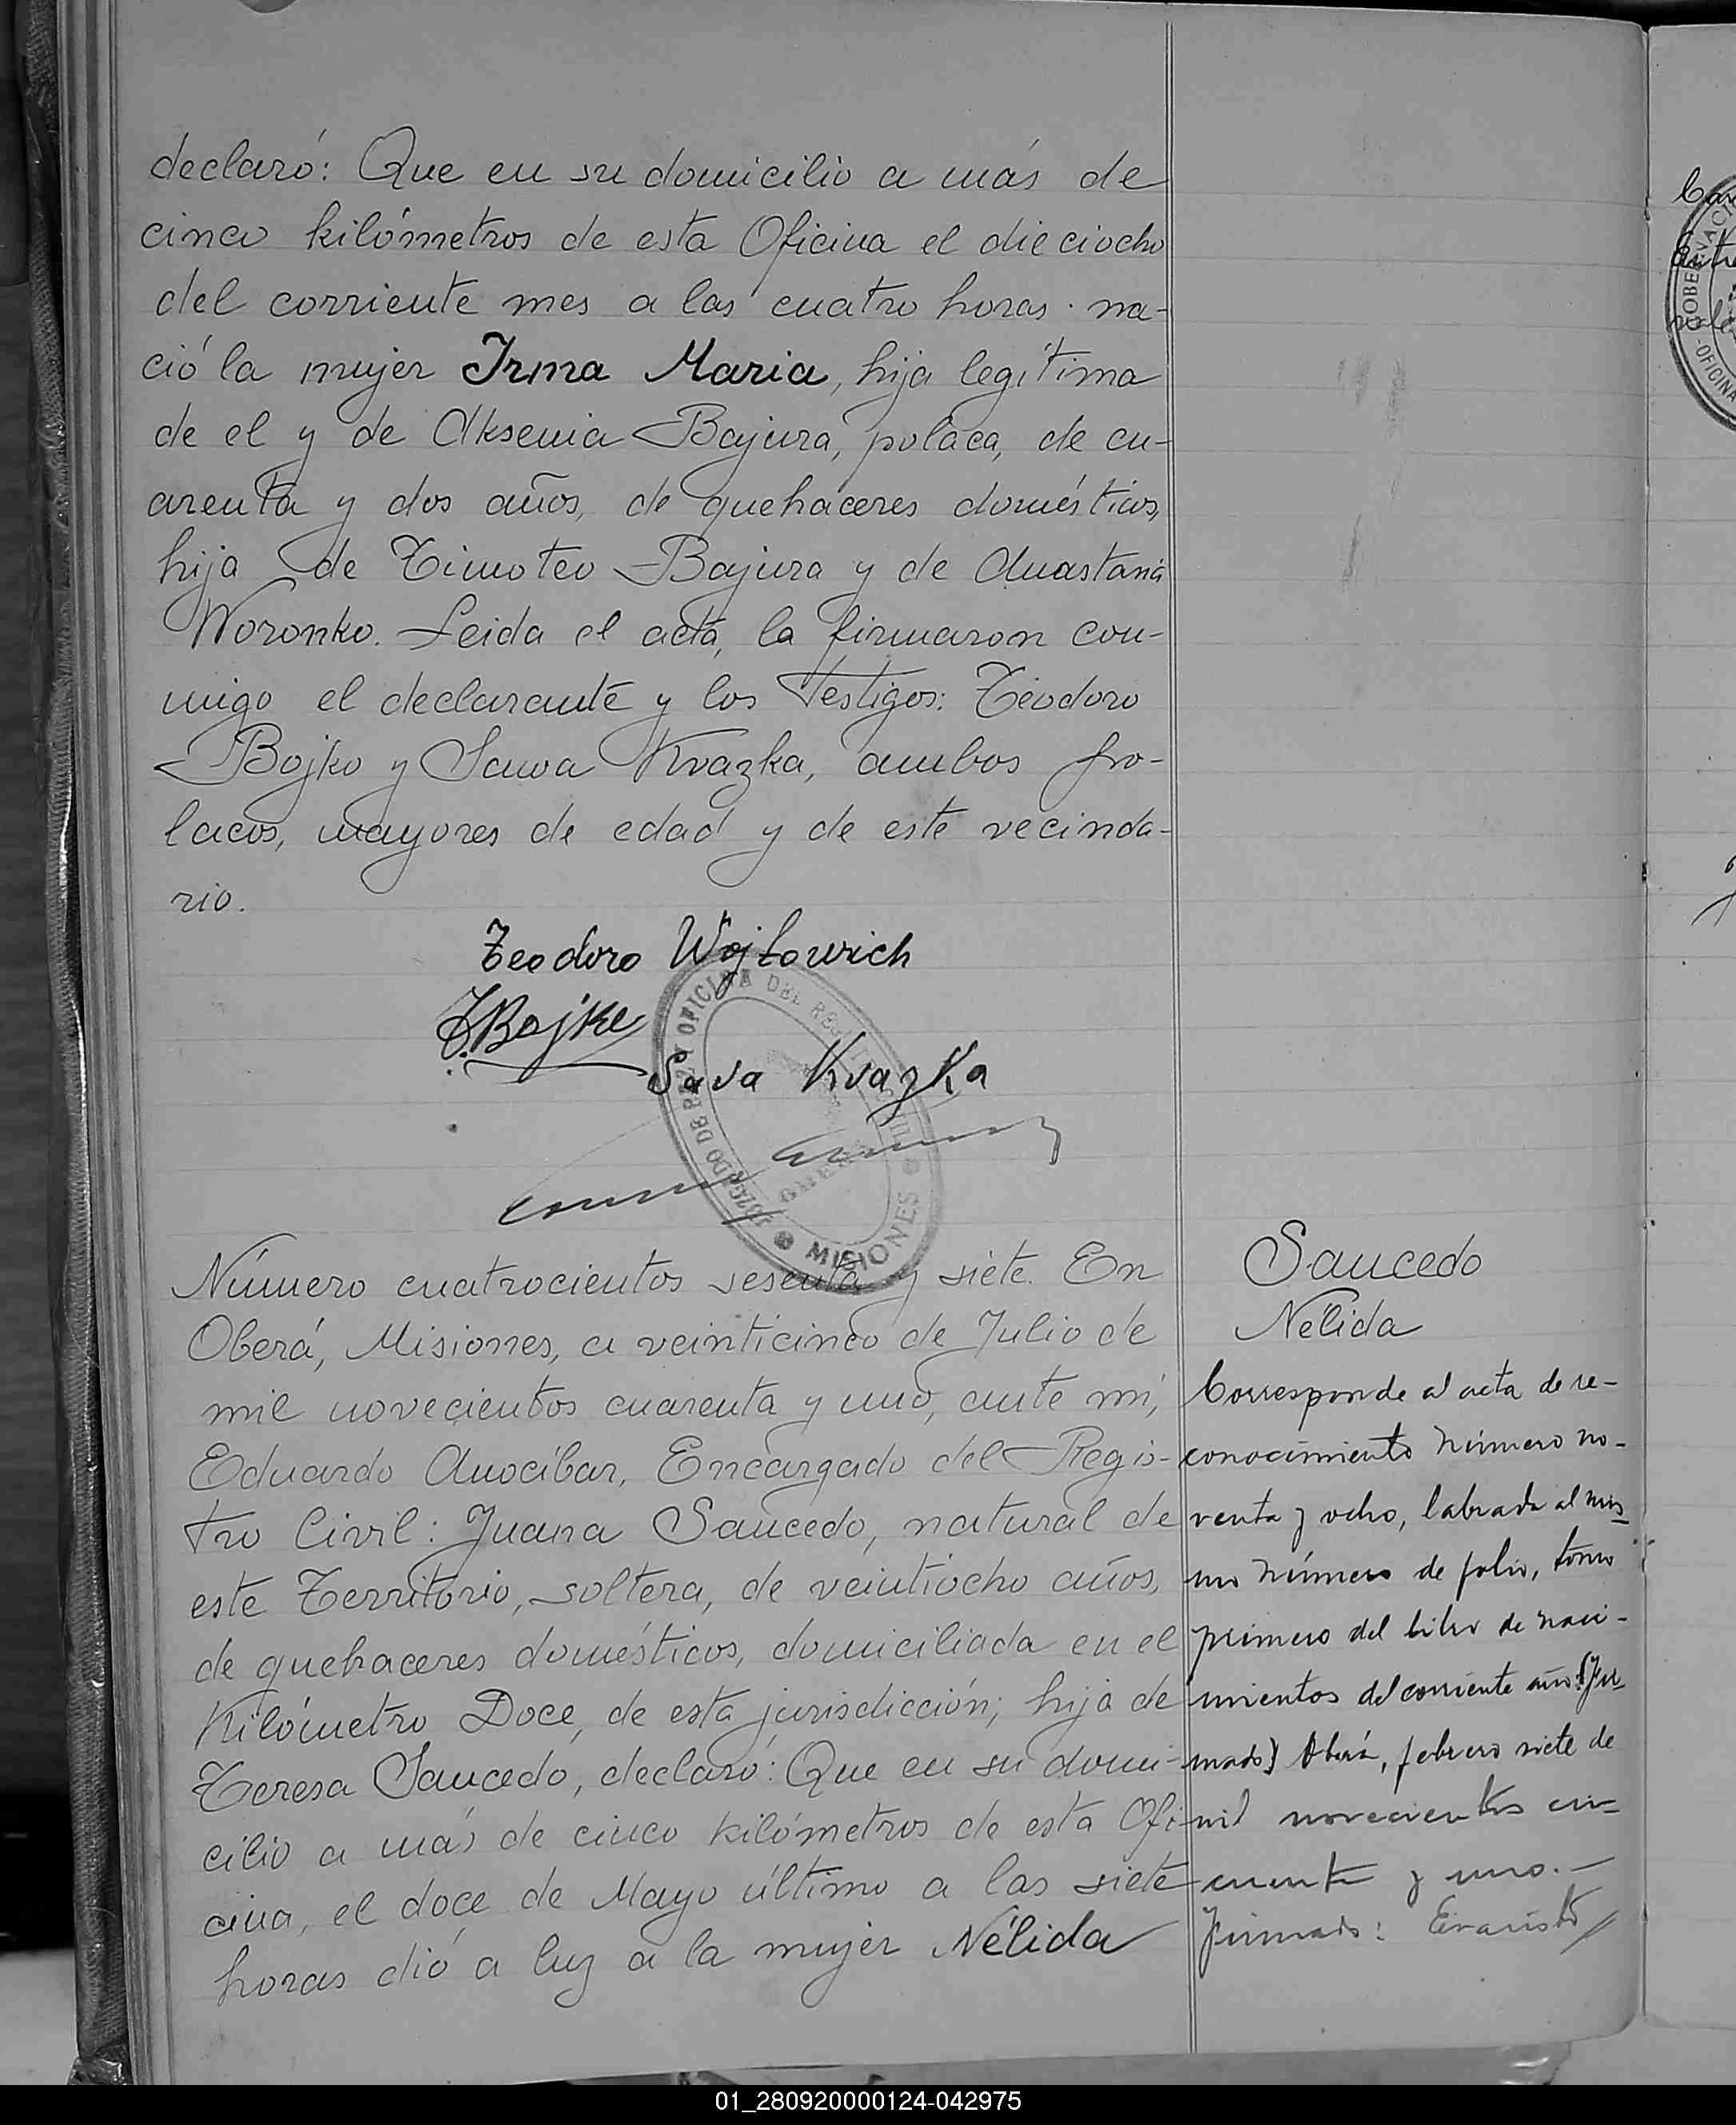 declaró: Que en su domicilio a más de
cinco kilómetros de esta Oficina el dieciocho
del corriente mes a las cuatro horas na-
ció la mujer Irma Maria, hija legítima
de el y de Aksenia Bajura, polaca, de cu-
arenta y dos años, de quehaceres domésticos,
hija de Timoteo Bajura y de Anastasia
Woronko. Leida el acta, la firmaron con-
migo el declarante y los testigos: Teodoro
Bojko y Sawa Kvazka, ambos po-
lacos, mayores de edad y de este vecinda-
rio.
Teodoro Wojtowich
T. Bojko
Sava Kvazka
JUZGADO DE PAZ Y OFICINA DEL REGISTRO CIVIL
OBERA
MISIONES
Número cuatrocientos sesenta y siete. En
Oberá, Misiones, a veinticinco de Julio de
mil novecientos cuarenta y uno, ante mi,
Eduardo Anocíbar, Encargado del Regis-
tro Civil: Juana Saucedo, natural de
este Territorio, soltera, de veintiocho años,
de quehaceres domésticos, domiciliada en el
Kilómetro Doce, de esta jurisdicción; hija de
Teresa Saucedo, declaró: Que en su domi-
cilio a más de cinco kilómetros de esta Ofi-
cina, el doce de Mayo último a las siete
horas dió a luz a la mujer Nélida
Saucedo
Nélida
Corresponde al acta de re-
conocimiento número no-
venta y ocho, labrada al mis-
mo número de folio, tomo
primero del libro de naci-
mientos del corriente año. (Fir-
mado) Oberá, febrero siete de
mil novecientos cin-
cuenta y uno.-
Firmado: Evaristo
GOBERNACI
OFICINA
01_280920000124-042975